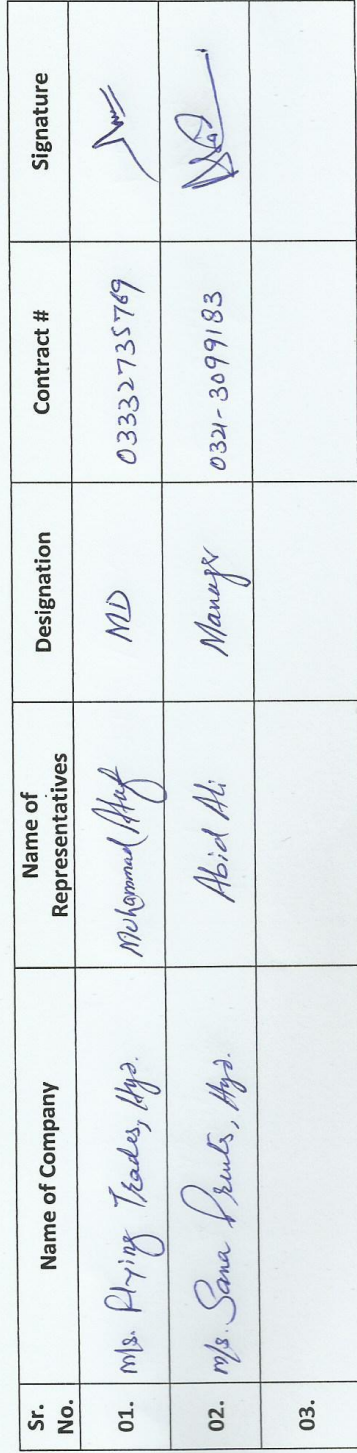 Sr. No. Name of Company Name of Representatives Designation Contract # Signature
01. M/s. Flying Trades, Hyd. Muhammad Altaf MD 03332735769
02. M/s. Sana Prints, Hyd. Abid Ali Manager 0321-3099183
03.